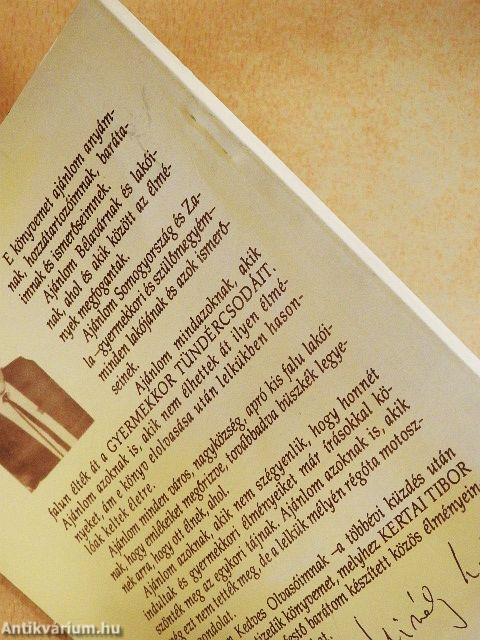 E könyvemet ajánlom anyám-
nak, hozzátartozóimnak, baráta-
imnak és ismerőseimnek.
Ajánlom Bélavárnak és lakói-
nak, ahol és akik között az élmé-
nyek megfogantak
Ajánlom Somogyország és Za-
la –gyermekkori és szülőmegyém–
minden lakójának és azok ismerő-
seinek.
Ajánlom mindazoknak, akik
falun élték át a GYERMEKKOR TÜNDÉRCSODÁIT.
Ajánlom azoknak is, akik nem élhettek át ilyen élmé-
nyeket, ám e könyv elolvasása után lelkükben hason-
lóak keltek életre.
Ajánlom minden város, nagyközség, apró kis falu lakói-
nak, hogy emlékeiket megőrizve, továbbadva büszkék legye-
nek arra, hogy ott élnek, ahol.
Ajánlom azoknak, akik nem szégyenlik, hogy honnét
indultak és gyermekkori élményeiket már írásokkal kö-
szönték meg az egykori tájnak. Ajánlom azoknak is, akik
még ezt nem tették meg, de a lelkük mélyén régóta motosz-
gondolat.
Kedves Olvasóimnak –a többévi küzdés után
tizedik könyvemet, melyhez KERTAI TIBOR
festő barátom készített közös élményein
Antikvárium.hu